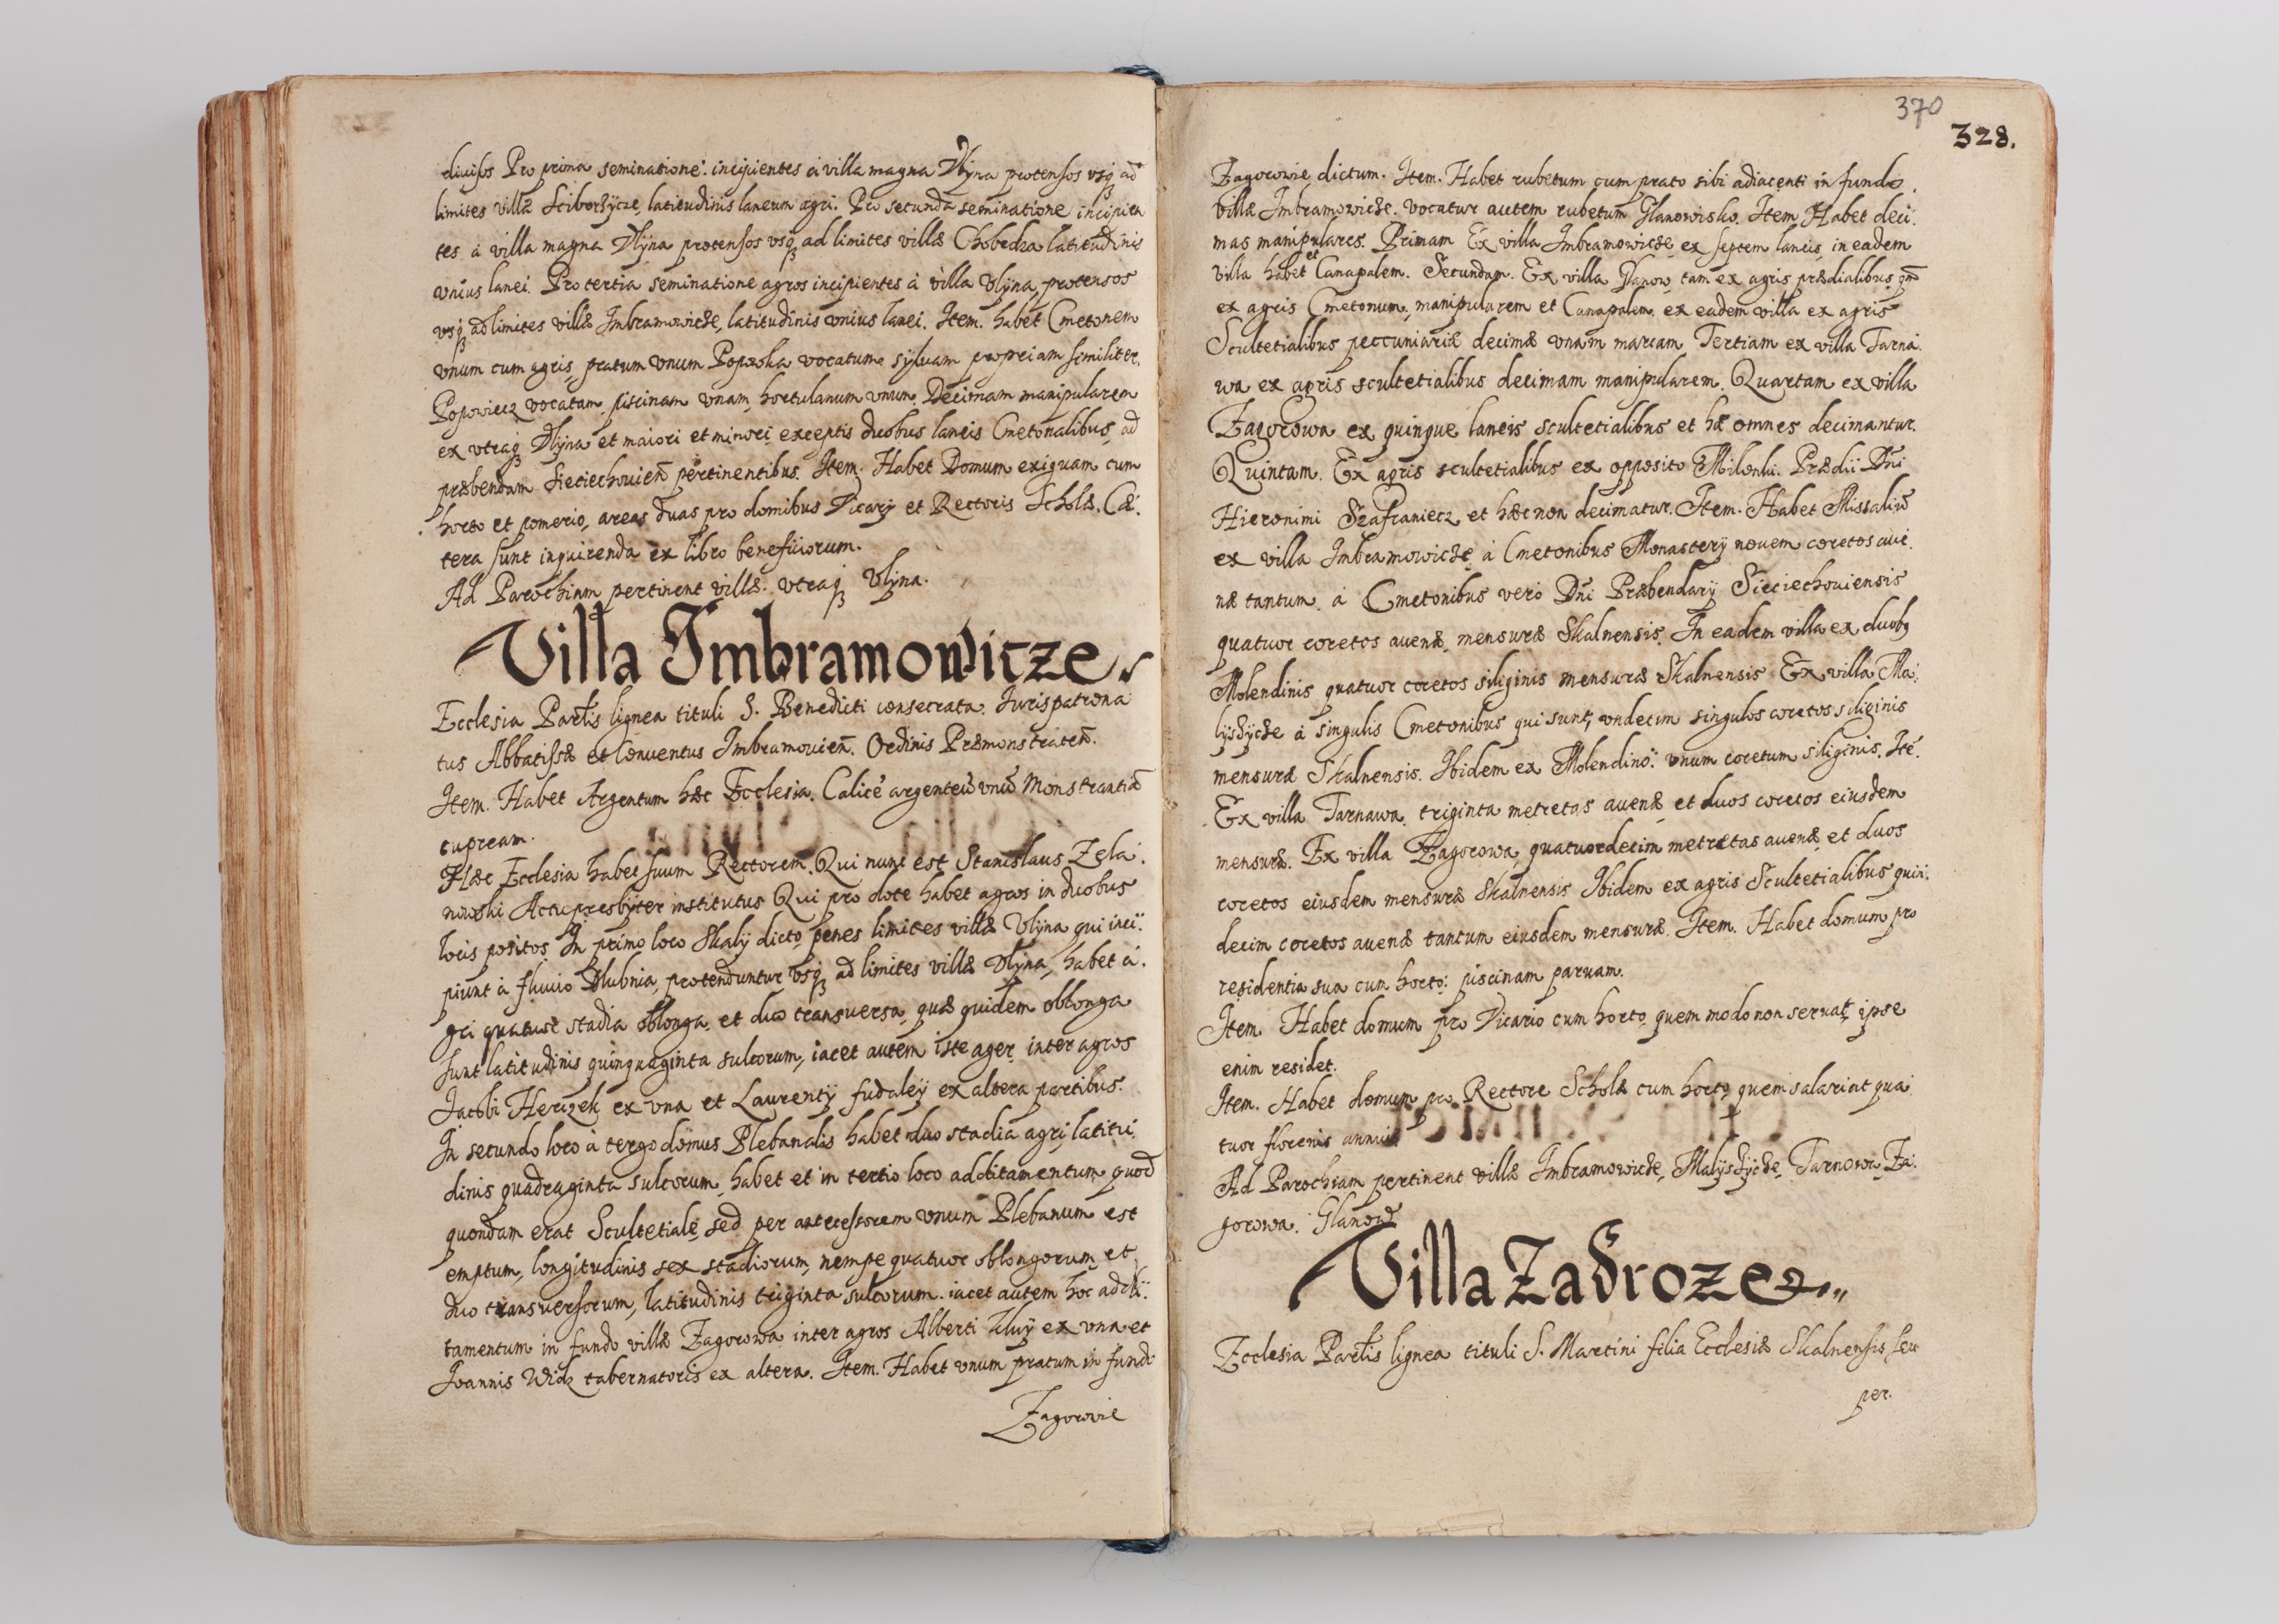 diuisos Pro prima seminatione: incipientes à villa magna Vlyna protensos vsq ad
limites villæ Sciborzÿcze, latitudinis laneum agri. Pro secunda seminatione incipien
tes à villa magna Vlÿna protensos vsq ad limites villæ Chobedza latitudinis
vnius lanei. Pro tertia seminatione agros incipientes à villa Vlÿna, protensos
vsq ad limites villæ Imbramowicze, latitudinis vnius lanei. Item. habet Cmetonem
vnum cum agris, pratum vnum Popwska vocatum sÿluam propriam similiter.
Popowiecz vocatam piscinam vnam, hortulanum vnum. Decimam manipularem
ex vtraq Vlÿna et maiori et minori exceptis duobus laneis Cmetonalibus, ad
præbendam Sieciechouieñ pertinentibus. Item. Habet Domum exiguam cum
horto et pomerio, areas duas pro domibus Vicarÿ et Rectoris Scholæ. Cæ:
tera sunt inquirenda ex libro beneficiorum.
Ad Parochiam pertinent villæ. vtraq Vlyna.
Villa Imbramowicze
Ecclesia Parlis lignea tituli S. Benedicti consecrata. Iurispatrona
tus Abbatissæ et Conuentus Imbramouieñ. Ordinis Præmonstrateñ.
Item. Habet Argentum hæc Ecclesia. Calicē argenteū vnū Monstrantiā
cupream.
Hæc Ecclesia habet suum Rectorem. Qui nunc est Stanislaus Zela:
nowski Actu presbÿter institutus Qui pro dote habet agros in duobus
locis positos. In primo loco Skalÿ dicto, penes limites villæ Vlÿna qui inci:
piunt à fluuio Dlubnia, protenduntur vsq ad limites villæ Vlÿna, habet a:
gri quatuor stadia oblonga, et duo transuersa, quæ quidem oblonga
sunt latitudinis quinquaginta sulcorum, iacet autem iste ager inter agros
Jacobi Herczek ex vna et Laurentÿ fudaleÿ ex altera partibus.
In secundo loco à tergo domus Plebanalis habet duo stadia agri, latitu:
dinis quadraginta sulcorum, habet et in tertio loco additamentum quod
quondam erat Scultetiale, sed per antecessorem vnum Plebanum est
emptum, longitudinis sex stadiorum, nempe quatuor oblongorum, et
duo transuersorum, latitudinis triginta sulcorum. iacet autem hoc addi:
tamentum in fundo villæ Zagorowa inter agros Alberti ex vna et
Joannis Widz tabernatoris ex altera. Item. Habet vnum pratum in fund
Zagorovie
370
328.
Zagorowie dictum. Item. Habet rubetum cum prato sibi adiacenti in fundo
villæ Imbramowicze. vocatur autem rubetum Glanowisko. Item Habet deci:
mas manipulares. Primam Ex villa Imbramowicze ex septem laneis, in eadem
villa habet et Canapalem. Secundam. Ex villa Glanow, tam ex agris prædialibus, qm
ex agris Cmetonum, manipularem et Canapalem. ex eadem villa ex agris
Scultetialibus peccuniariæ decimæ vnam marcam Tertiam ex villa Tarna:
wa ex agris scultetialibus decimam manipularem. Quartam ex villa
Zagorowa ex quinque laneis scultetialibus et hæ omnes decimantur.
Quintam. Ex agris scultetialibus ex opposito Milonki. Prædii Dñi
Hieronimi Szafraniecz et hæc non decimatur. Item. Habet Missaliū
ex villa Imbramowicze à Cmetonibus Monasterÿ nouem coretos aue:
næ tantum. à Cmetonibus verò Dñi Præbendarÿ Sieciechouiensis
quatuor coretos auenæ, mensuræ Skalnensis. In eadem villa ex duobq
Molendinis quatuor coretos siliginis mensuræ Skalnensis Ex villa Ma:
lÿszÿcze à singulis Cmetonibus qui sunt, vndecim singulos coretos siliginis
mensuræ Skalnensis. Ibidem ex Molendino: vnum coretum siliginis. Itē.
Ex villa Tarnawa. triginta metretas auenæ et duos coretos eiusdem
mensuræ. Ex villa Zagorowa, quatuordecim metretas auenæ et duos
coretos eiusdem mensuræ Skalnensis Ibidem ex agris Scultetialibus quin:
decim coretos auenæ tantum eiusdem mensuræ. Item. Habet domum pro
residentia sua cum horto: piscinam paruam.
Item. Habet domum pro Vicario cum horto, quem modo non seruat, ipse
enim residet.
Item. Habet domum pro Rectore Scholæ cum horto, quem salarint qua:
tuor florenis annuis
Ad Parochiam pertinent villæ Imbramowicze, Malÿszÿcze, Tarnowa, Za:
gorowa. Glanow
Villa Zadroze
Ecclesia Parlis lignea tituli S. Martini filia Ecclesiæ Skalnensis seu
per.